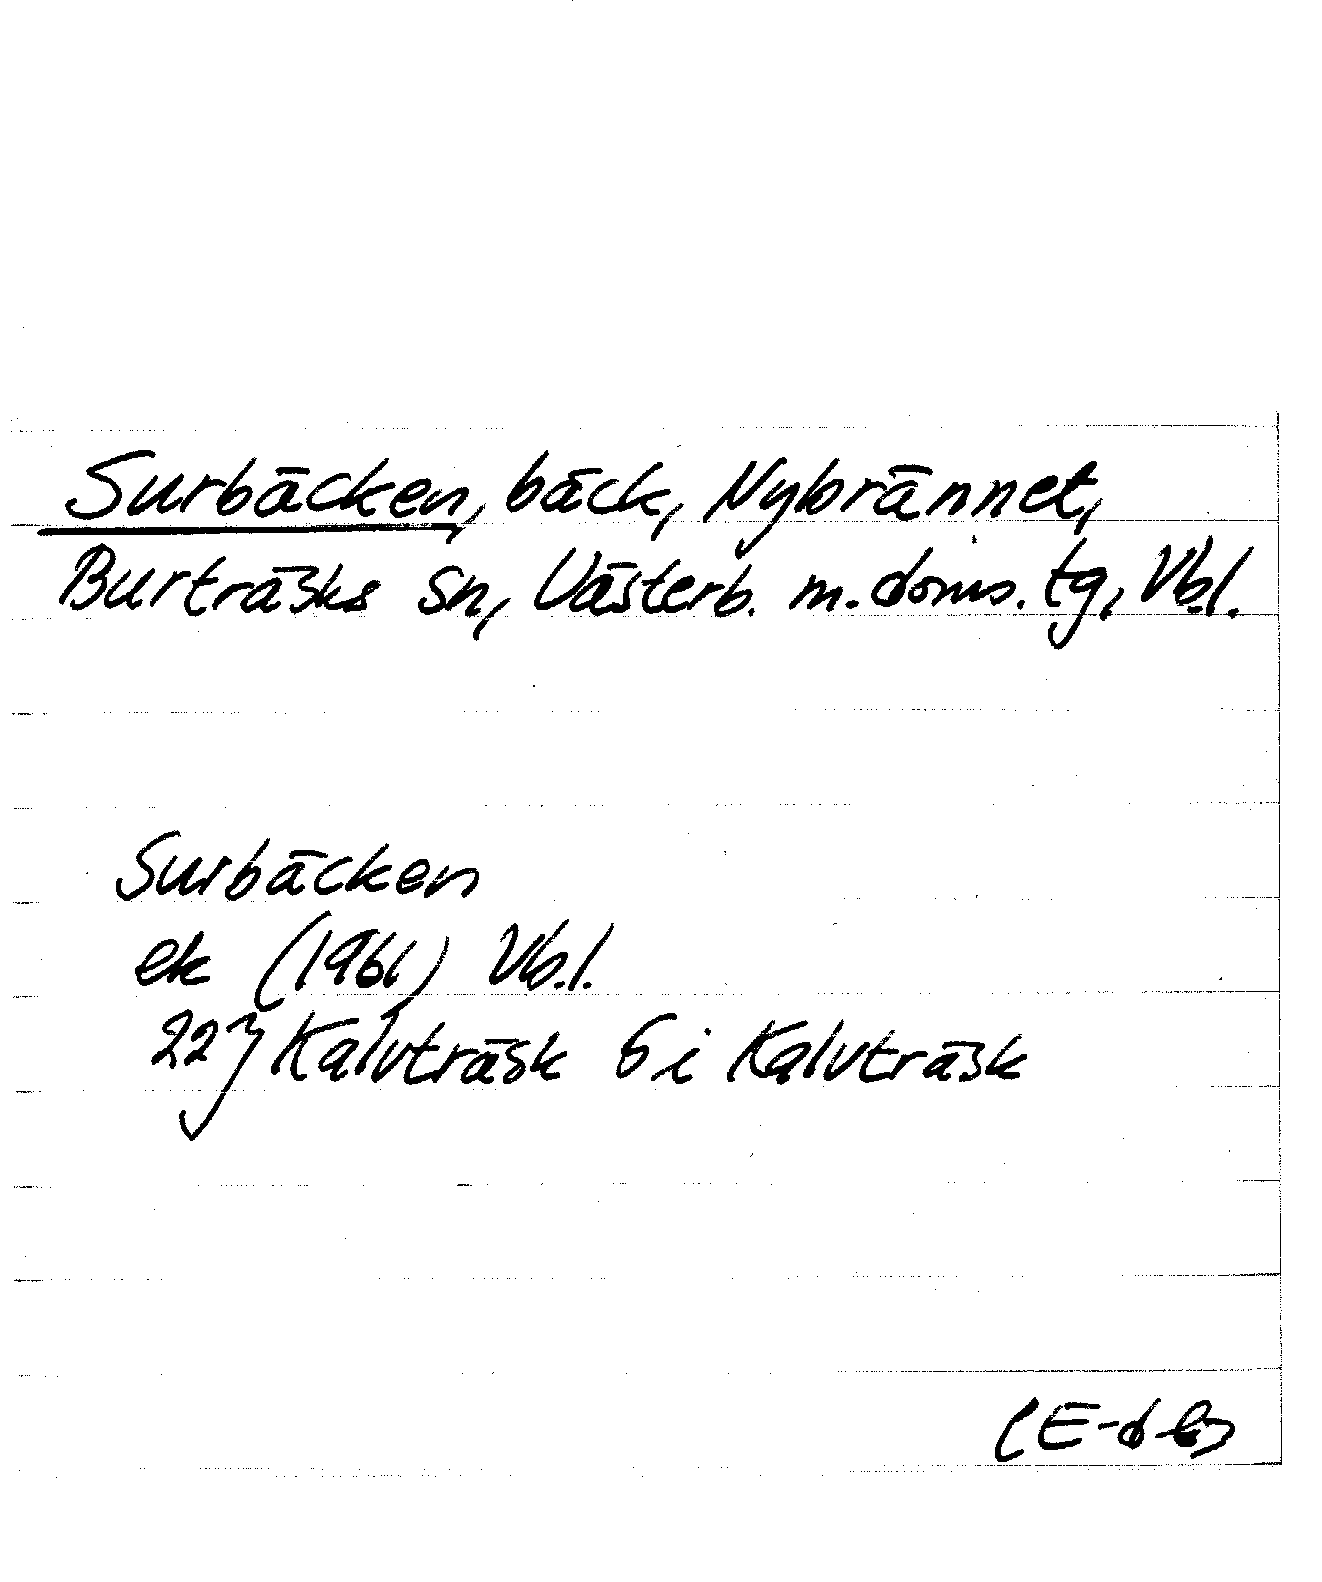 Surbäcken, bäck, Nybrännet,
Burträsks sn, Västerb. m. doms. tg, Vb.l.
Surbäcken
ek (1961) Vb.l.
22 J Kalvträsk 6 i Kalvträsk